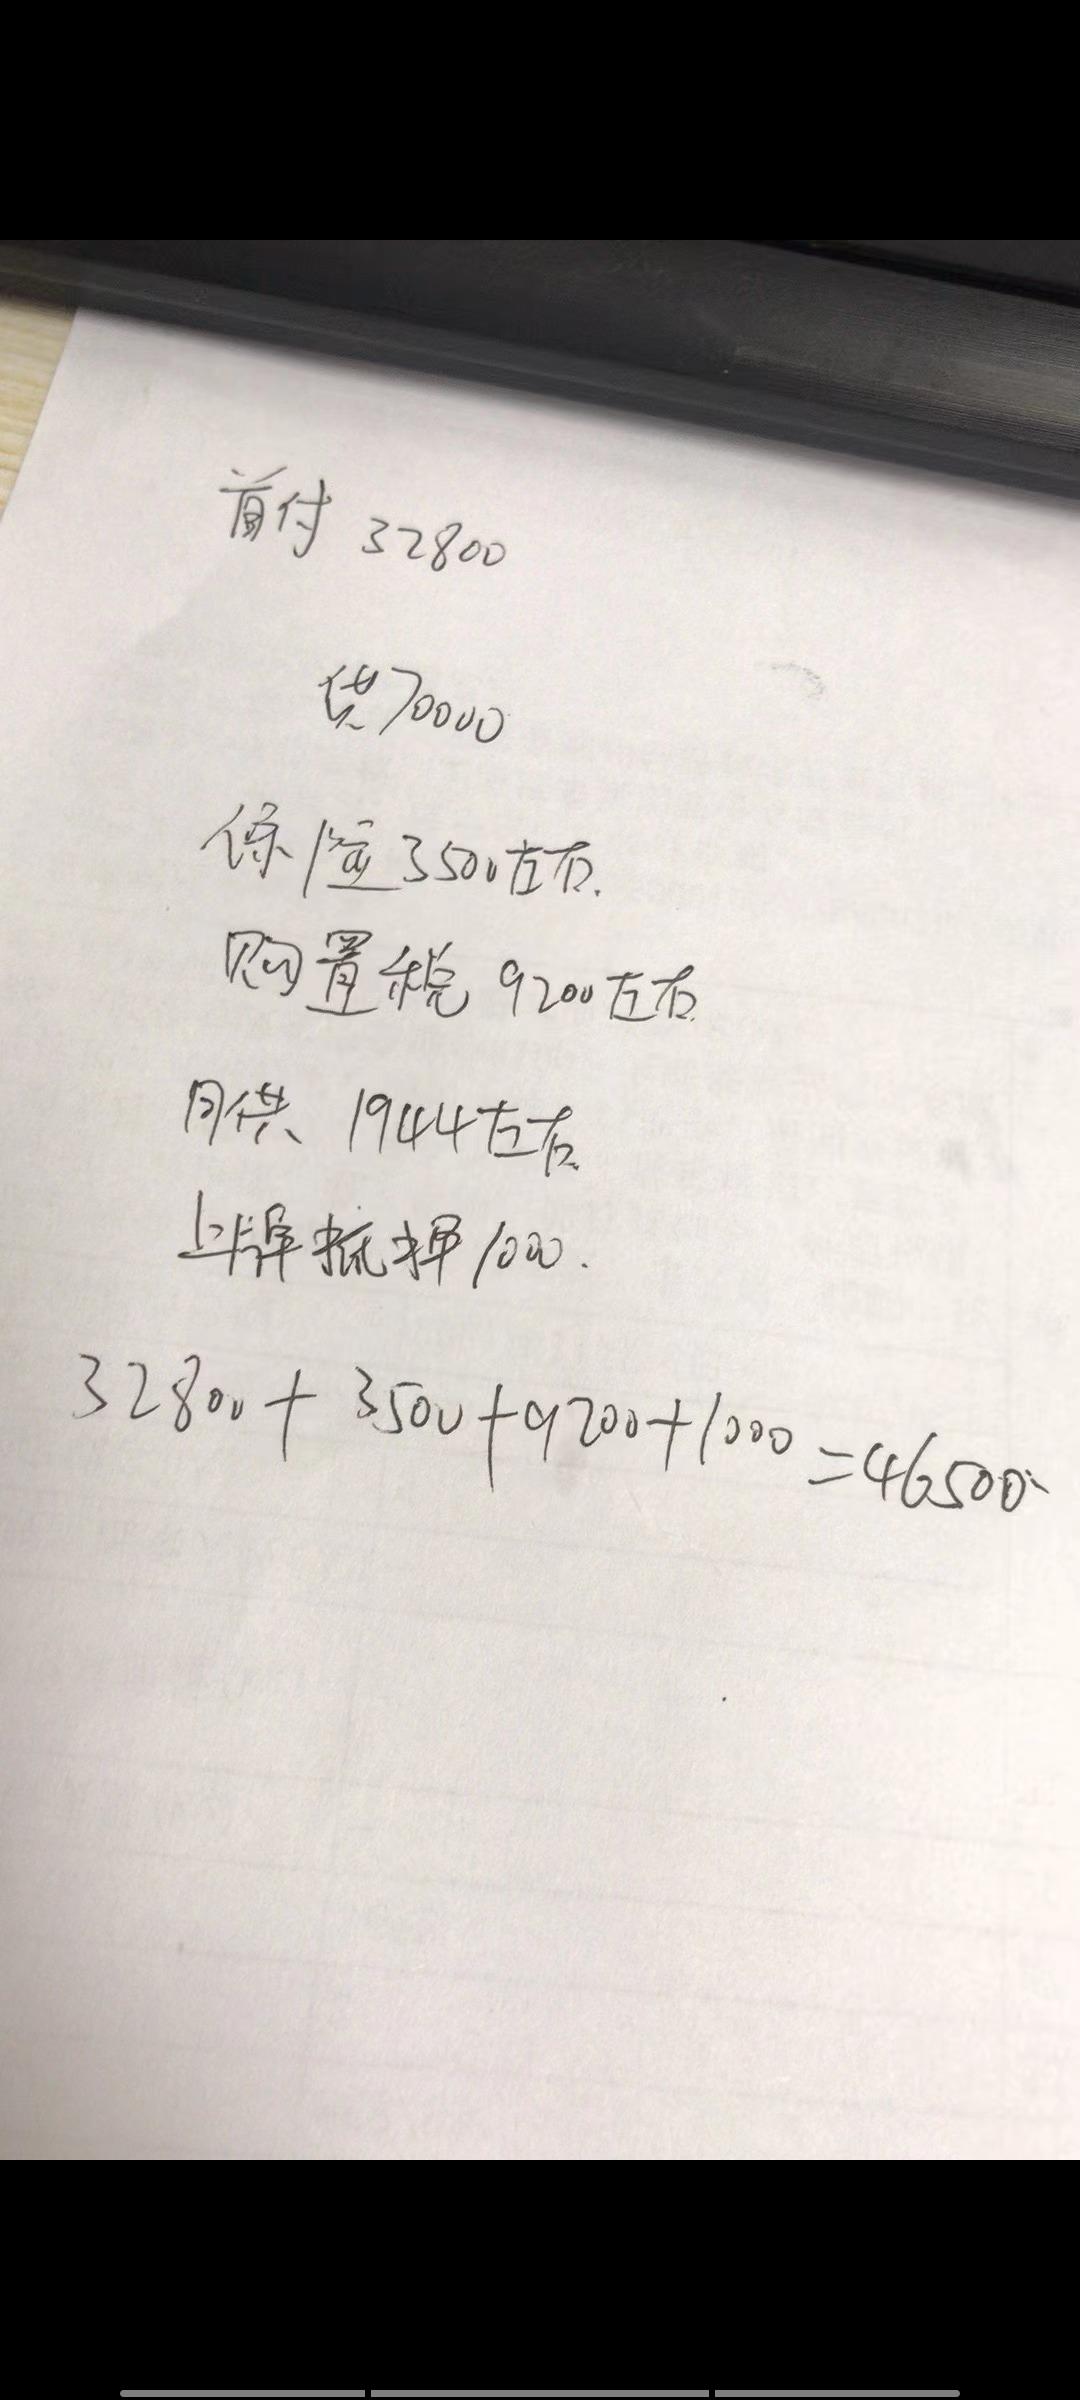 首付 32800
贷70000
保险3500左右.
购置税 9200左右.
月供 1944左右.
上牌抵押1000.
32800+3500+9200+1000=46500